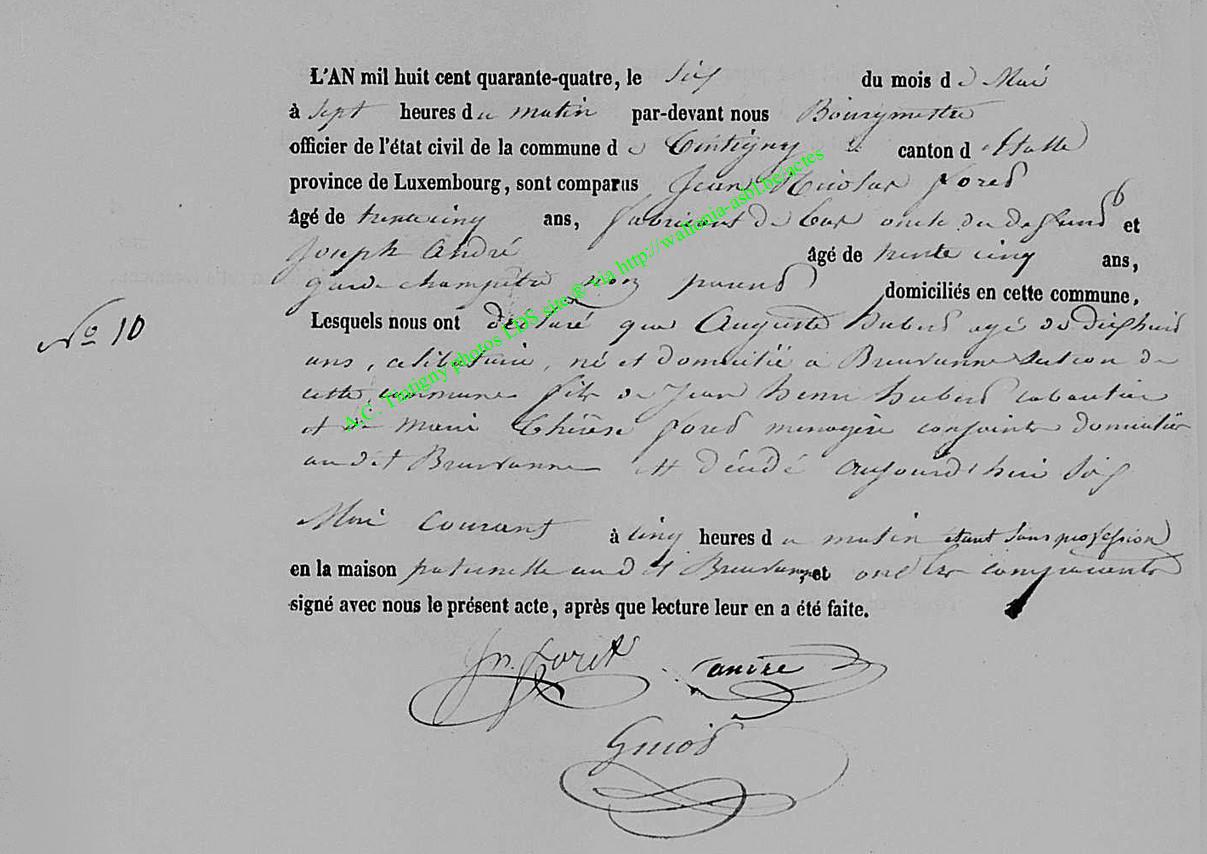 L'AN mil huit cent quarante-quatre, le six du mois de Mai
à sept heures du matin par-devant nous Bourgmestre
officier de l'état civil de la commune de Tintigny canton d'Etalle
province de Luxembourg, sont comparus Jean Nicolas Foret
âgé de trente cinq ans, fabricant de bas oncle du défunt et
Joseph André âgé de trente cinq ans,
garde champêtre non parent domiciliés en cette commune,
N° 10
Lesquels nous ont déclaré que Auguste Hubert agé de dix huit
ans, celibataire, né et domicilié à Breuvanne section de
cette commune fils de Jean henri hubert cabaretier
et de Marie Thérèse Foret menagère conjoints domiciliés
audit Breuvanne est décédé aujourd'hui six
Mai courant à cinq heures du matin etant sans profession
en la maison paternelle audit Breuvanne, et ont les comparants
signé avec nous le présent acte, après que lecture leur en a été faite.
Jn. Foret andre
Guiot
A.C. Tintigny photos LDS site & via http://wallonia-asbl.be/actes